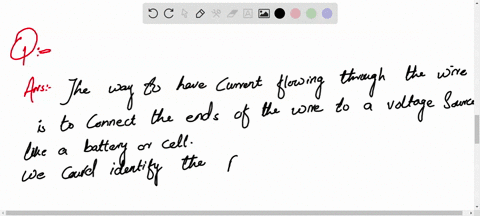 Q:-
Ans:- The way to have current flowing through the wire
is to connect the ends of the wire to a voltage source
like a battery or cell.
We could identify the